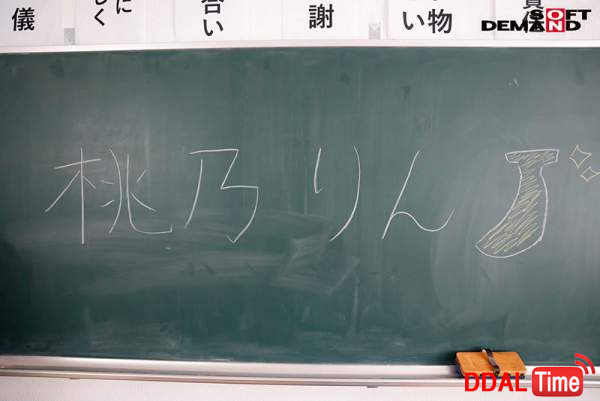 儀
しく
に
合い
謝
い
物
SOFT
DEMAND
桃乃りん
DDAL Time